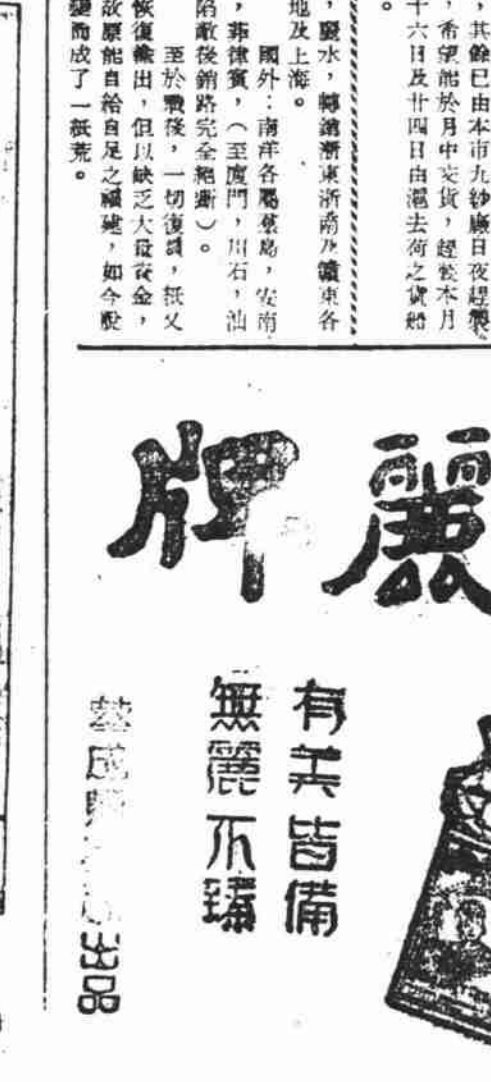 ，其餘已由本市九紗廠日夜趕製
，希望能於月中交貨，趕裝本月
十六日及廿四日由滬去荷之貨船
。
，麗水，轉銷浙東浙南及贛東各
地及上海。
國外：南洋各屬羣島，安南
，菲律賓，（至廈門，川石，汕
陷敵後銷路完全絕斷）。
至於戰後，一切復員，紙又
恢復輸出，但以缺乏大量資金，
故原能自給自足之福建，如今
變而成了一紙荒。
麗牌
有美皆備
無麗不臻
出品